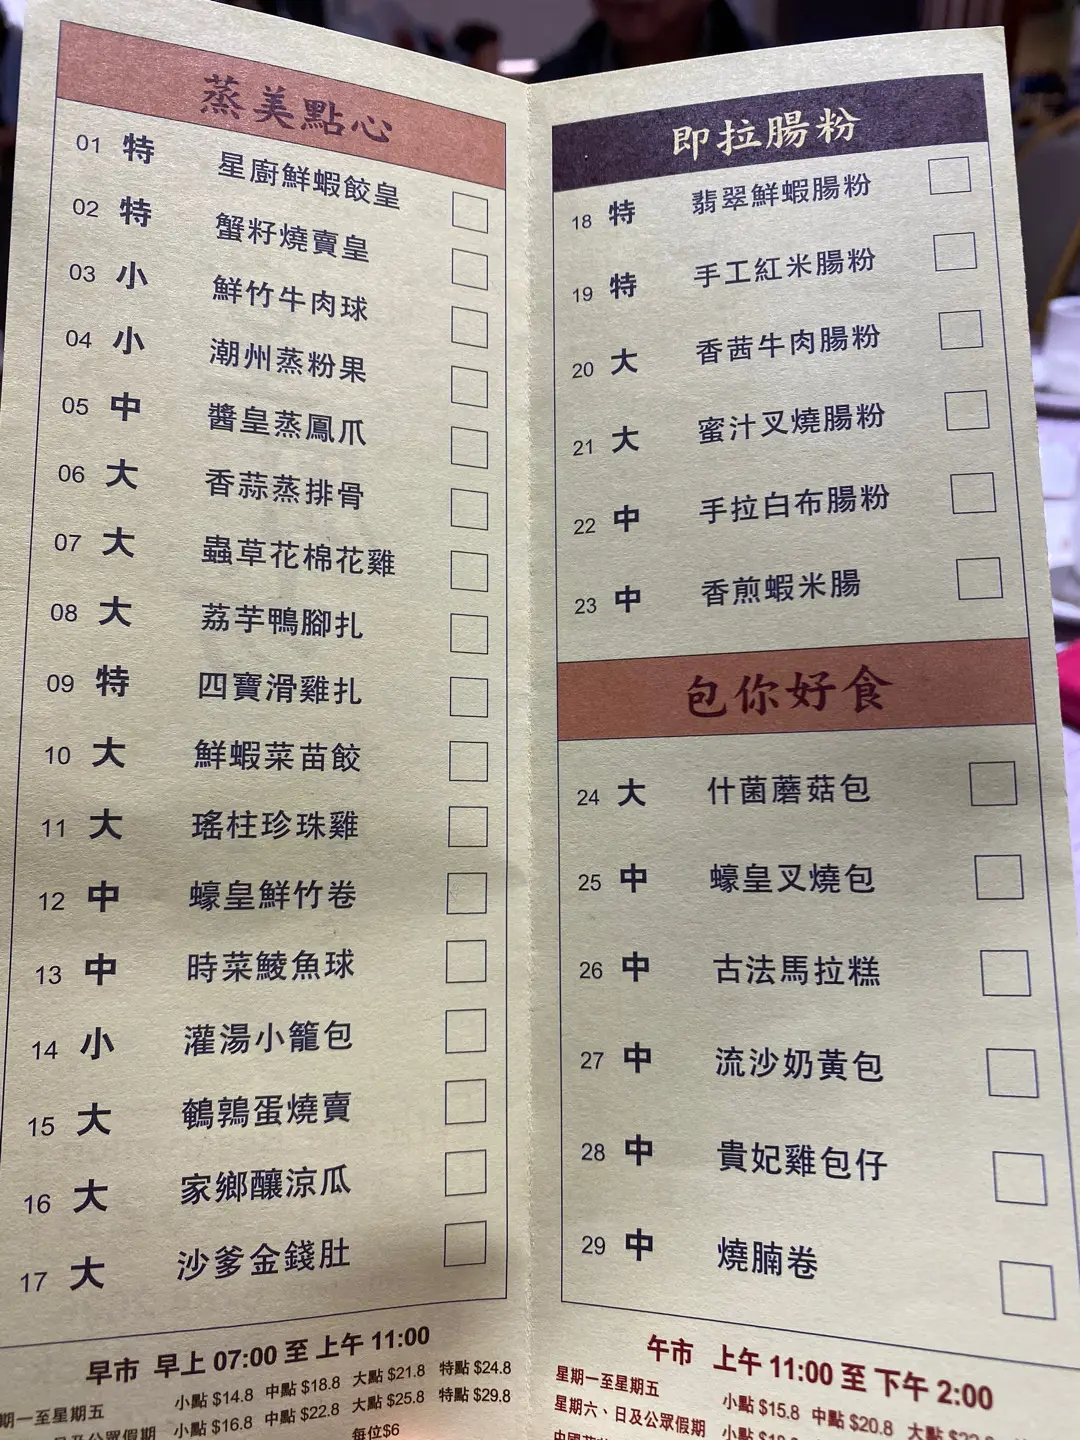 蒸美點心
01 特 星廚鮮蝦餃皇
02 特 蟹籽燒賣皇
03 小 鮮竹牛肉球
04 小 潮州蒸粉果
05 中 醬皇蒸鳳爪
06 大 香蒜蒸排骨
07 大 蟲草花棉花雞
08 大 荔芋鴨腳扎
09 特 四寶滑雞扎
10 大 鮮蝦菜苗餃
11 大 瑤柱珍珠雞
12 中 蠔皇鮮竹卷
13 中 時菜鯪魚球
14 小 灌湯小籠包
15 大 鵪鶉蛋燒賣
16 大 家鄉釀涼瓜
17 大 沙爹金錢肚
早市 早上 07:00 至 上午 11:00
期一至星期五 小點 $14.8 中點 $18.8 大點 $21.8 特點 $24.8
日及公眾假期 小點 $16.8 中點 $22.8 大點 $25.8 特點 $29.8
每位$6
即拉腸粉
18 特 翡翠鮮蝦腸粉
19 特 手工紅米腸粉
20 大 香茜牛肉腸粉
21 大 蜜汁叉燒腸粉
22 中 手拉白布腸粉
23 中 香煎蝦米腸
包你好食
24 大 什菌蘑菇包
25 中 蠔皇叉燒包
26 中 古法馬拉糕
27 中 流沙奶黃包
28 中 貴妃雞包仔
29 中 燒腩卷
午市 上午 11:00 至 下午 2:00
星期一至星期五 小點 $15.8 中點 $20.8 大點
星期六、日及公眾假期 小點